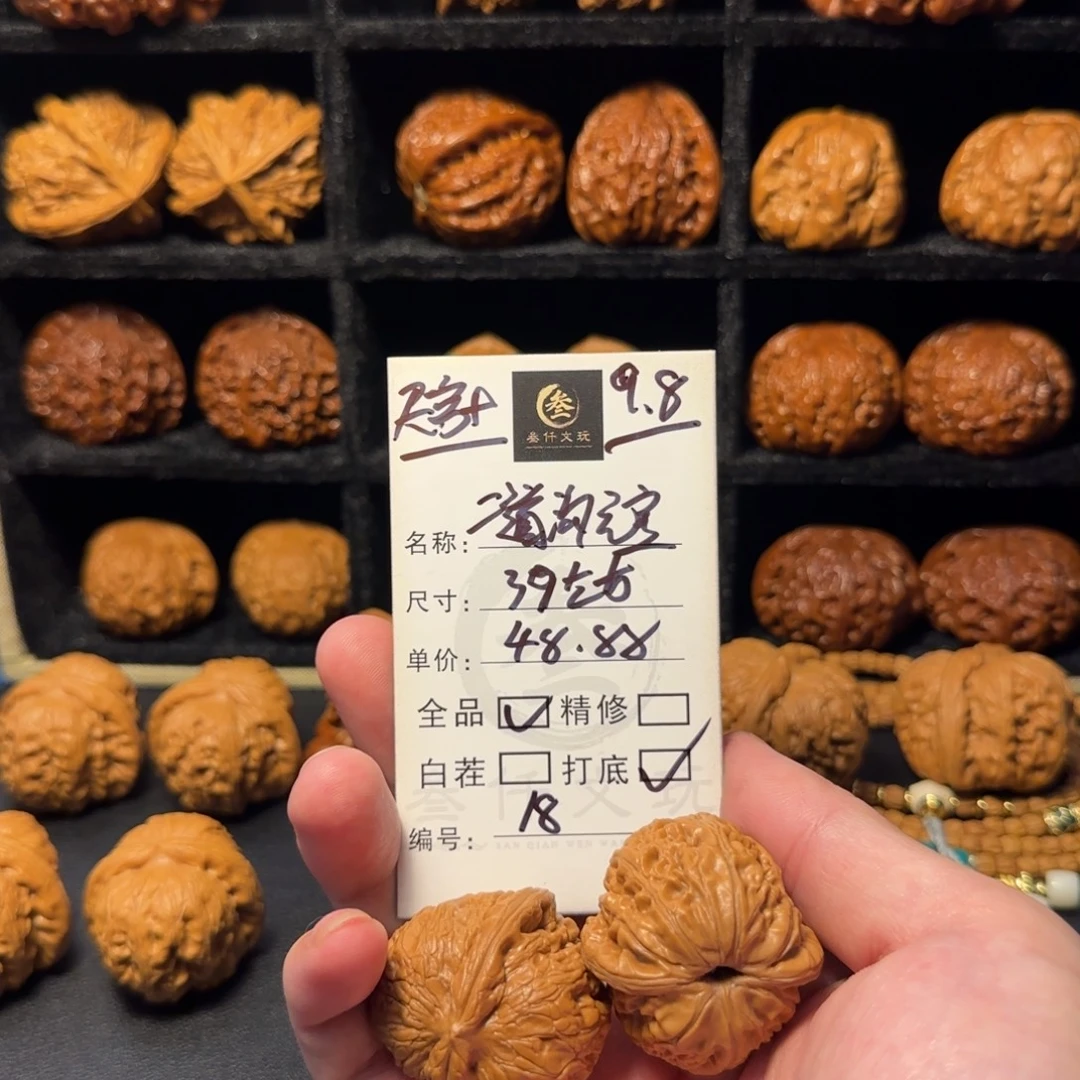 9.8
叁
叁仟文玩
名称:
尺寸: 39左右
单价: 48.88
全品 精修
白茬 打底
编号: 18
叁仟文玩
SAN QIAN WEN WAN